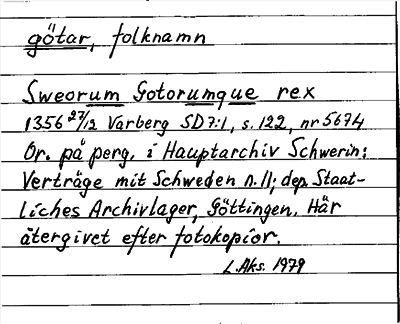 götar, folknamn
Sweorum Gotorumque rex
1356 27/12 Varberg SD 7:1, s. 122, nr 5674
Or. på perg. i Hauptarchiv Schwerin:
Verträge mit Schweden n. 11; dep. Staat-
liches Archivlager, Göttingen. Här
återgivet efter fotokopior.
L. Aks. 1979